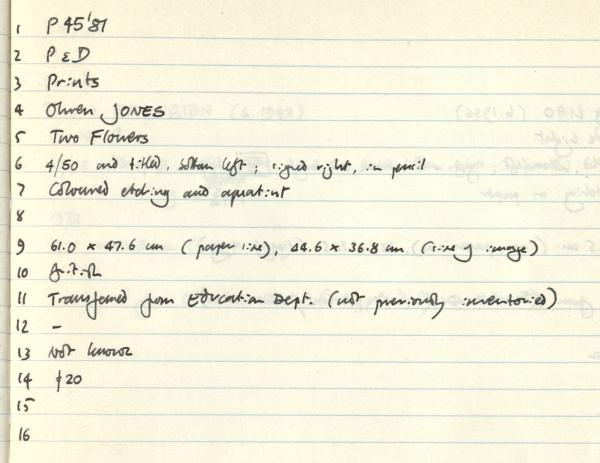 1 P 45'81
2 P & D
3 Prints
4 Olwen JONES
5 Two Flowers
6 4/50 and titled, bottom left; signed right, in pencil
7 Coloured etching and aquatint
8
9 61.0 × 47.6 cm (paper size), 44.6 × 36.8 cm (size of image)
10 British
11 Transferred from Education Dept. (not previously inventoried)
12 –
13 Not known
14 £20
15
16